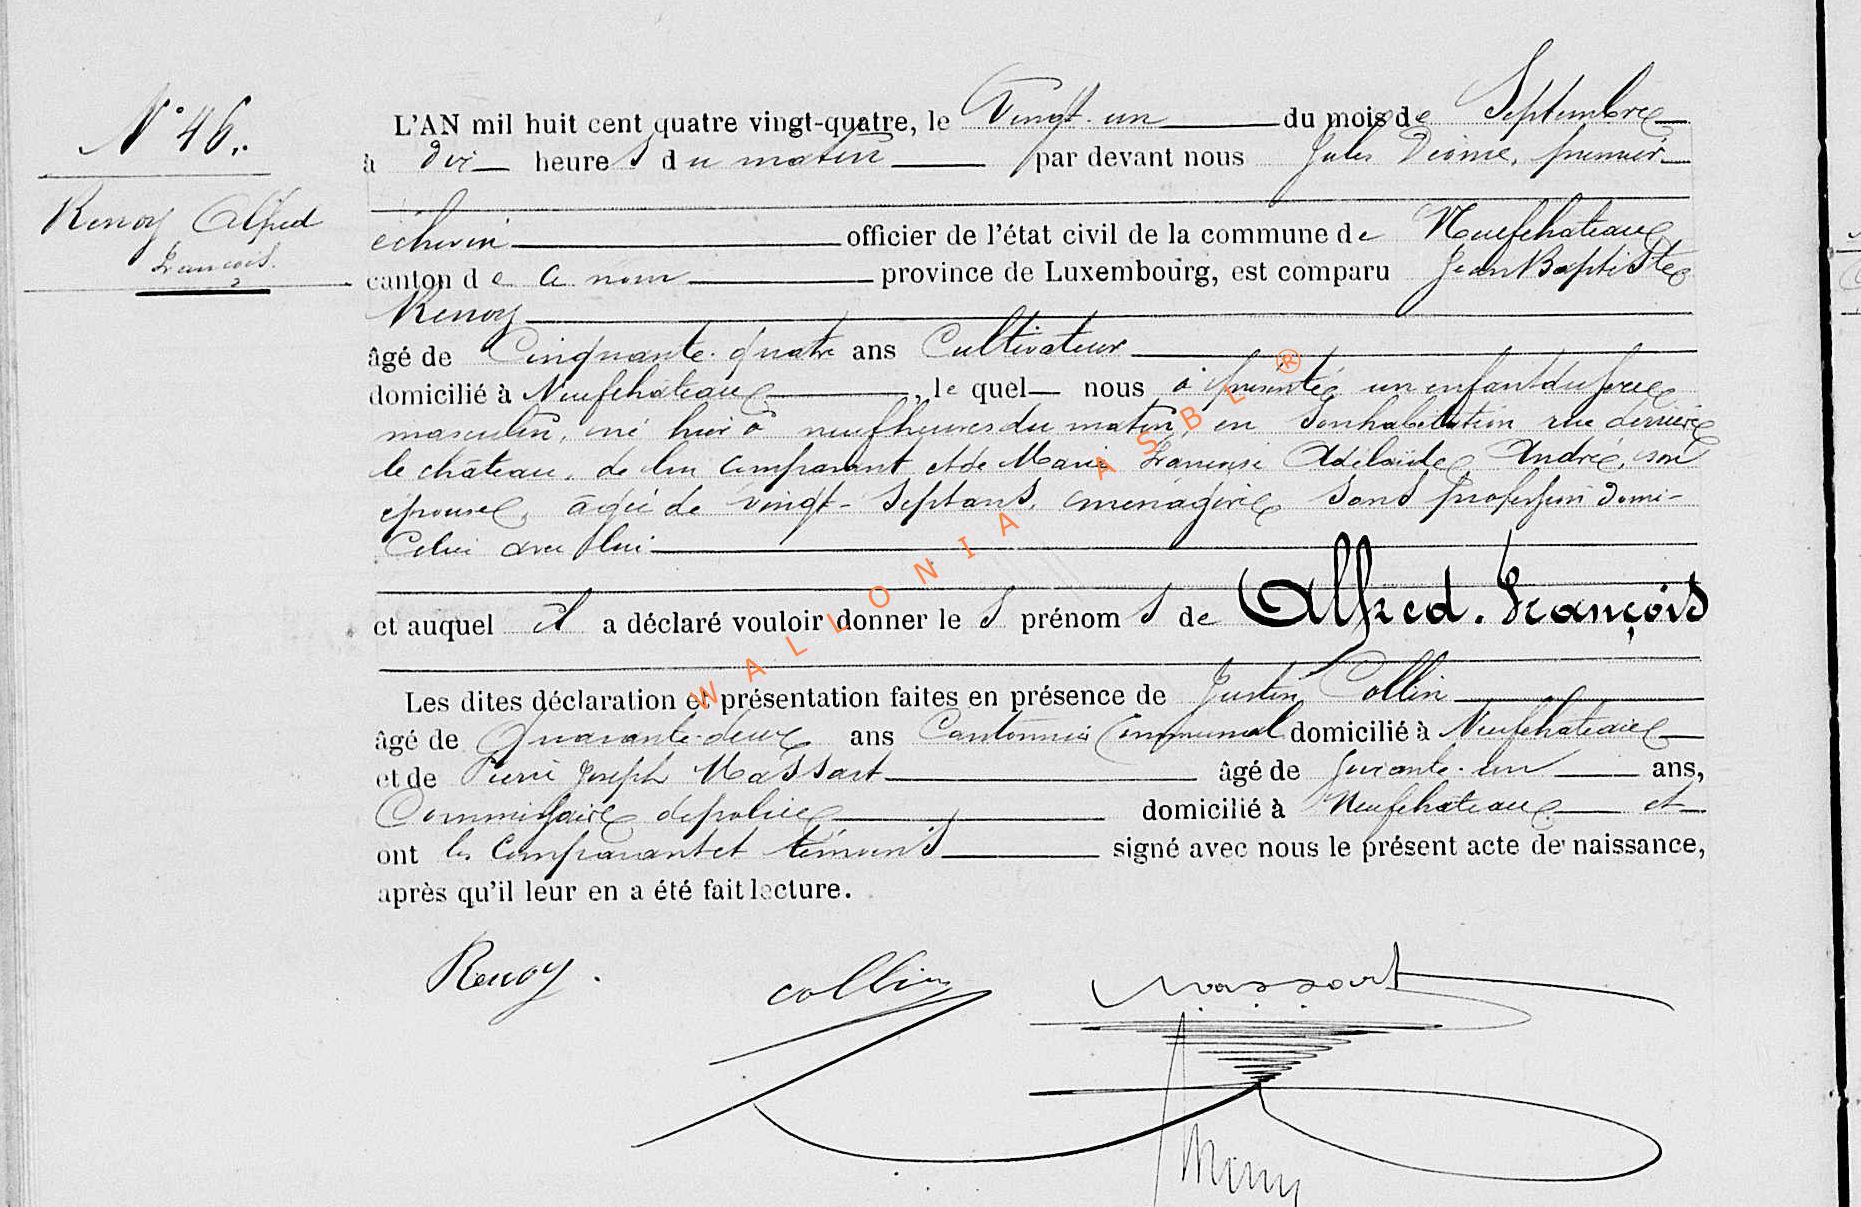 N° 46.
Renoy Alfred
François.
L'AN mil huit cent quatre vingt-quatre, le Vingt-un du mois de Septembre
à dix heures du matin par devant nous Jules premier
échevin officier de l'état civil de la commune de Neufchâteau
canton de ce nom province de Luxembourg, est comparu Jean Baptiste
Renoy
âgé de Cinquante-quatre ans Cultivateur
domicilié à Neufchâteau, lequel nous a présenté un enfant du sexe
masculin, né hier à neuf heures du matin, en son habitation rue derrière
le château, de lui comparant et de Marie Françoise Adélaïde André, son
épouse, âgée de vingt-sept ans, ménagère sans profession domi-
ciliée avec lui
et auquel il a déclaré vouloir donner les prénoms de Alfred-François
Les dites déclaration et présentation faites en présence de Justin Collin
âgé de Quarante-deux ans Cantonnier Communal domicilié à Neufchâteau
et de Pierre Joseph Massart âgé de ans,
Commissaire de police domicilié à Neufchâteau et
ont les comparant et témoins signé avec nous le présent acte de naissance,
après qu'il leur en a été fait lecture.
Renoy.
Collin
Massart
WALLONIA ASBL ®